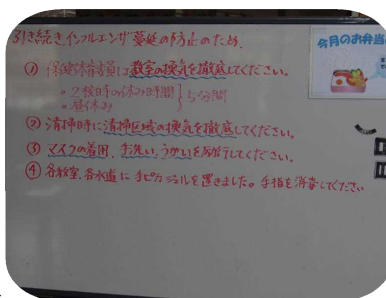 引き続きインフルエンザ蔓延の防止のため、
① 保健体育委員は教室の換気を徹底してください。
・2校時の休み時間
・昼休み } 5分間
② 清掃時に清掃区域の換気を徹底してください。
③ マスクの着用、手洗い、うがいを励行してください。
④ 各教室、各水道に手ピカジェルを置きました。手指を消毒してください
今月のお弁当